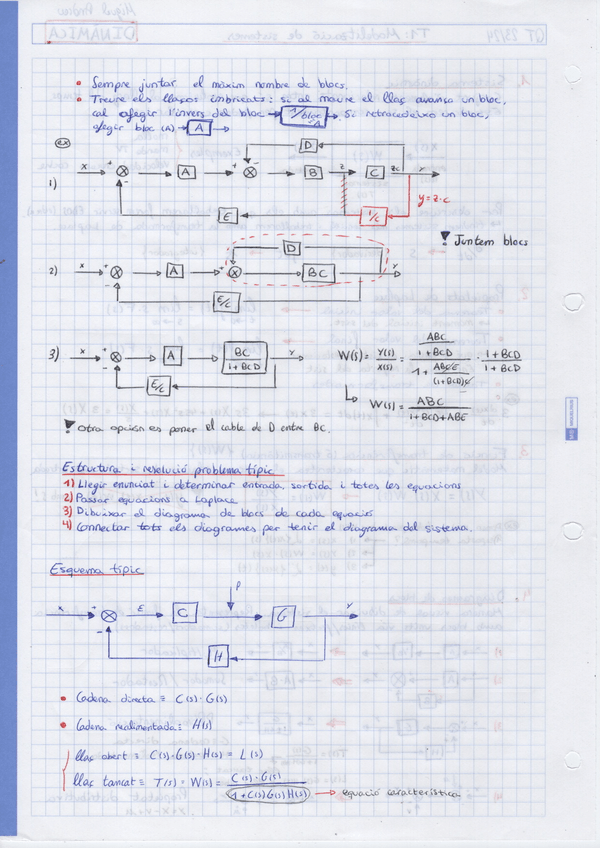 • Sempre juntar el màxim nombre de blocs.
• Treure els llaços imbricats: si al moure el llaç avança un bloc,
cal afegir l'invers del bloc → 1/bloc A → Si retrocedeixo un bloc,
afegir bloc (A) → A →
ex
D
1) x + - A + - B z C zc Y
E 1/c y=z·c
! Juntem blocs
D
2) x + - A + - BC Y
E/c
3) x + - A BC/(1+BCD) Y
E/c
W(s) = Y(s)/X(s) = (ABC/(1+BCD))/(1+ABCE/((1+BCD)c)) · (1+BCD)/(1+BCD)
↳ W(s) = ABC/(1+BCD+ABE)
! Otra opción es poner el cable de D entre BC.
Estructura i resolució problema típic
1) Llegir enunciat i determinar entrada, sortida i totes les equacions
2) Passar equacions a Laplace
3) Dibuixar el diagrama de blocs de cada equació
4) Connectar tots els diagrames per tenir el diagrama del sistema.
Esquema típic
P
x + - E C G Y
H
• Cadena directa ≡ C(s)·G(s)
• Cadena realimentada: H(s)
llaç obert ≡ C(s)·G(s)·H(s) = L(s)
llaç tancat ≡ T(s) = W(s) = C(s)·G(s)/(1+C(s)G(s)H(s)) → equació característica